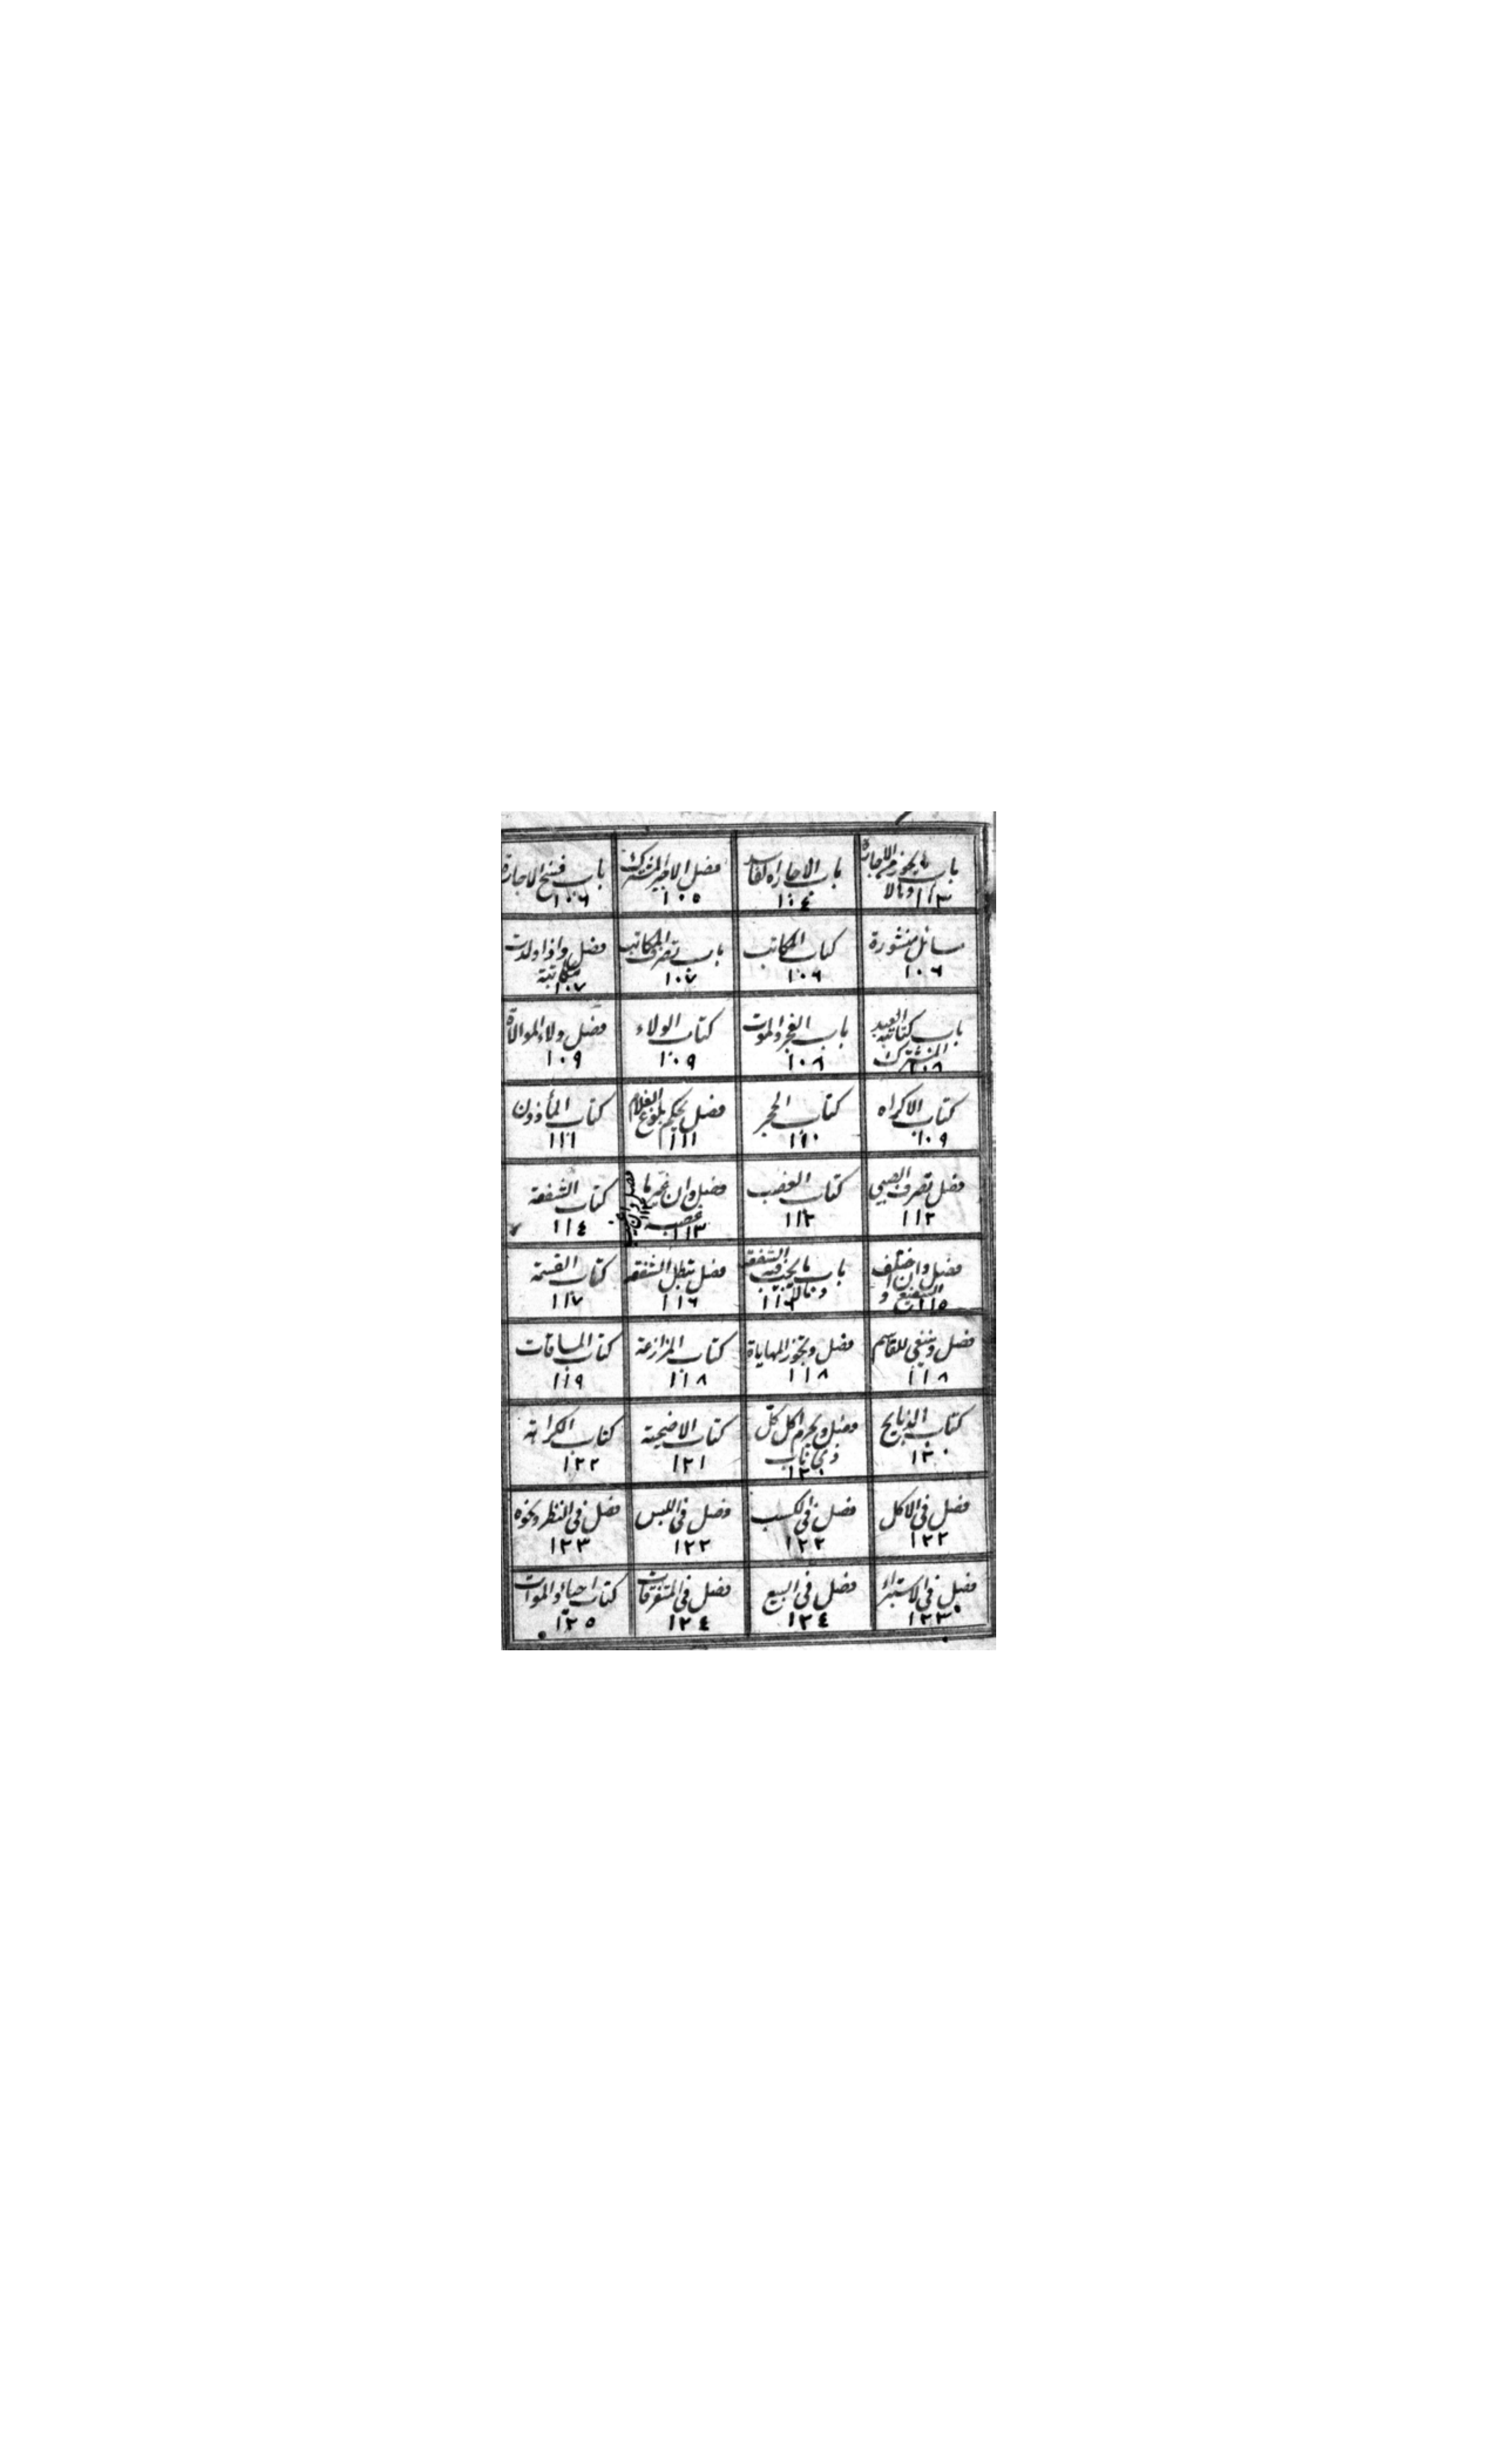 باب ما يجوز من الاجارة
وما لا
١١٣
باب الاجارة الفاسد
١٠٤
فصل الاجير المشترك
١٠٥
باب فسخ الاجارة
١٠٦
مسائل منثورة
١٠٦
كتاب المكاتب
١٠٦
باب تصرف المكاتب
١٠٧
فصل واذا ولدت
مكاتبة
١٠٧
باب كتابة العبد
المشترك
١٠٨
باب العجز والموت
١٠٨
كتاب الولاء
١٠٩
فصل ولاء الموالاة
١٠٩
كتاب الاكراه
١٠٩
كتاب الحجر
١١٠
فصل يحكم بلوغ الغلام
١١١
كتاب المأذون
١١١
فصل تصرف الصبي
١١٢
كتاب الغصب
١١٢
فصل وان غير ما
غصبه
١١٣
كتاب الشفعة
١١٤
فصل وان اختلف
الشفيع و
١١٥
باب ما يجب فيه الشفعة
وما لا يجب
١١٦
فصل تبطل الشفعة
١١٦
كتاب القسمة
١١٧
فصل وينبغي للقاسم
١١٨
فصل وتجوز المهاياة
١١٨
كتاب المزارعة
١١٨
كتاب المساقات
١١٩
كتاب الذبايح
١٢٠
فصل ويحرم اكل كل
ذي ناب
١٢٠
كتاب الاضحية
١٢١
كتاب الكراهة
١٢٢
فصل في الاكل
١٢٢
فصل في الكسب
١٢٢
فصل في اللبس
١٢٢
فصل في النظر ونحوه
١٢٣
فصل في الاستبراء
١٢٣
فصل في البيع
١٢٤
فصل في المتفرقات
١٢٤
كتاب احياء الموات
١٢٥